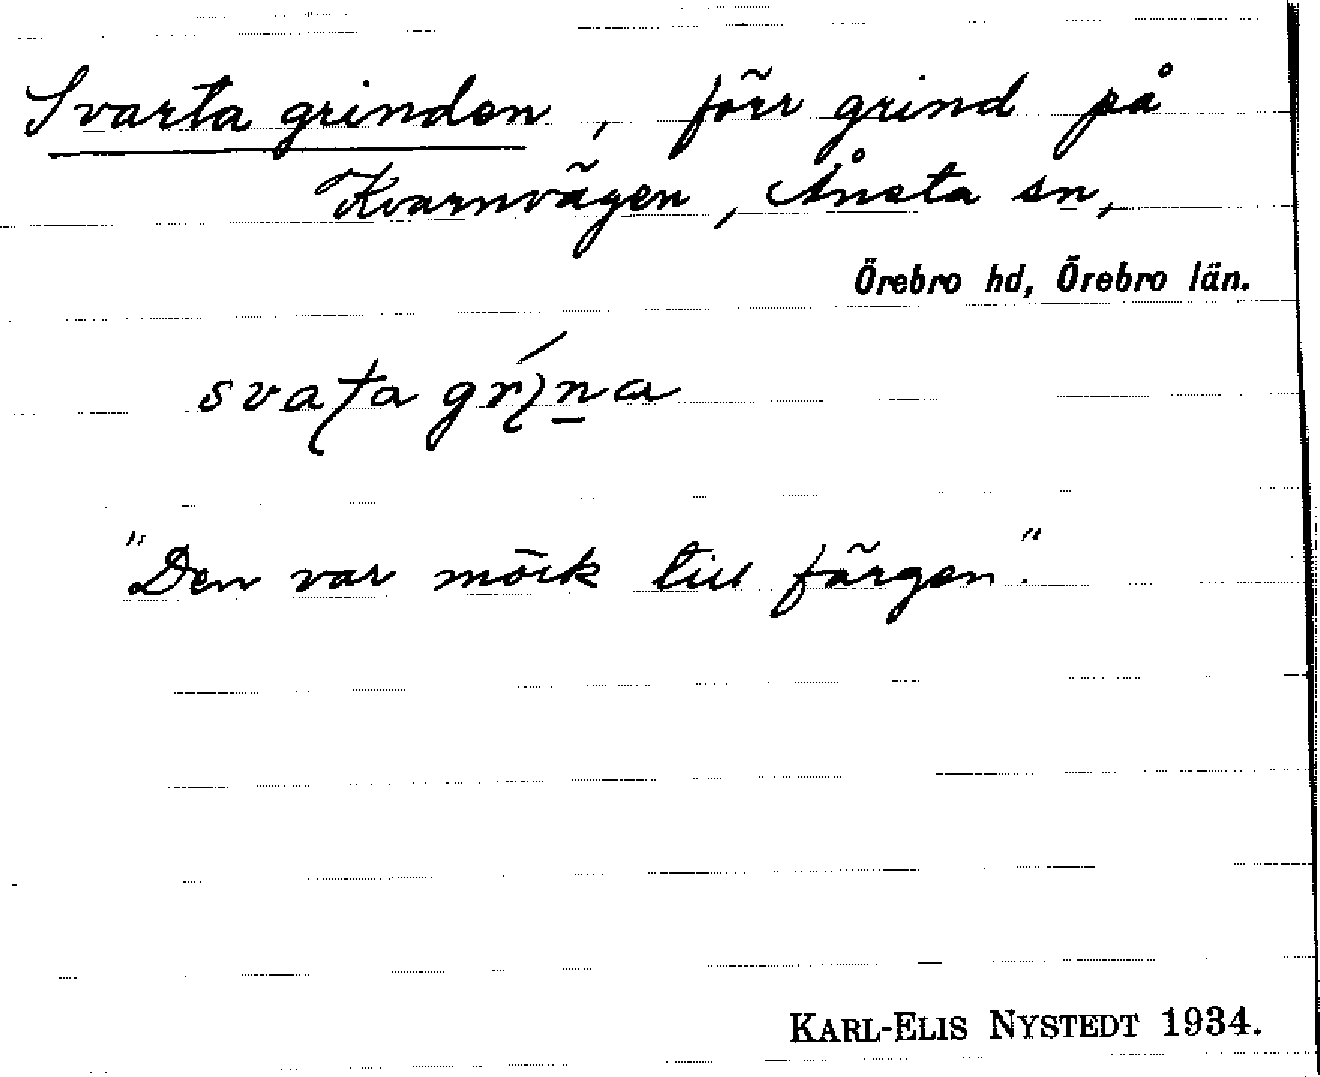 Svarta grinden, förr grind på
Kvarnvägen, Ånsta sn,
Örebro hd, Örebro län.
svaʈa grı̨́n̲a
"Den var mörk till färgen".
KARL-ELIS NYSTEDT 1934.